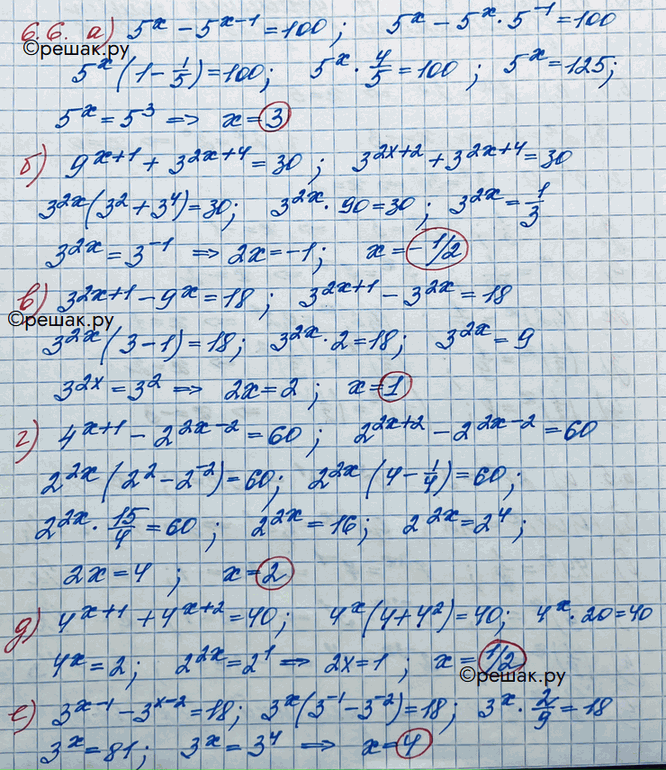 6.6. а) 5^x − 5^(x−1) = 100; 5^x − 5^x · 5^(−1) = 100
©решак.ру
5^x (1 − 1/5) = 100; 5^x · 4/5 = 100; 5^x = 125;
5^x = 5^3 => x = 3
б) 9^(x+1) + 3^(2x+4) = 30; 3^(2x+2) + 3^(2x+4) = 30
3^(2x) (3^2 + 3^4) = 30; 3^(2x) · 90 = 30; 3^(2x) = 1/3
3^(2x) = 3^(−1) => 2x = −1; x = −1/2
в) 3^(2x+1) − 9^x = 18; 3^(2x+1) − 3^(2x) = 18
©решак.ру
3^(2x) (3 − 1) = 18; 3^(2x) · 2 = 18; 3^(2x) = 9
3^(2x) = 3^2 => 2x = 2; x = 1
г) 4^(x+1) − 2^(2x−2) = 60; 2^(2x+2) − 2^(2x−2) = 60
2^(2x) (2^2 − 2^(−2)) = 60; 2^(2x) (4 − 1/4) = 60;
2^(2x) · 15/4 = 60; 2^(2x) = 16; 2^(2x) = 2^4;
2x = 4; x = 2
д) 4^(x+1) + 4^(x+2) = 40; 4^x (4 + 4^2) = 40; 4^x · 20 = 40
4^x = 2; 2^(2x) = 2^1 => 2x = 1; x = 1/2
©решак.ру
е) 3^(x−1) − 3^(x−2) = 18; 3^x (3^(−1) − 3^(−2)) = 18; 3^x · 2/9 = 18
3^x = 81; 3^x = 3^4 => x = 4